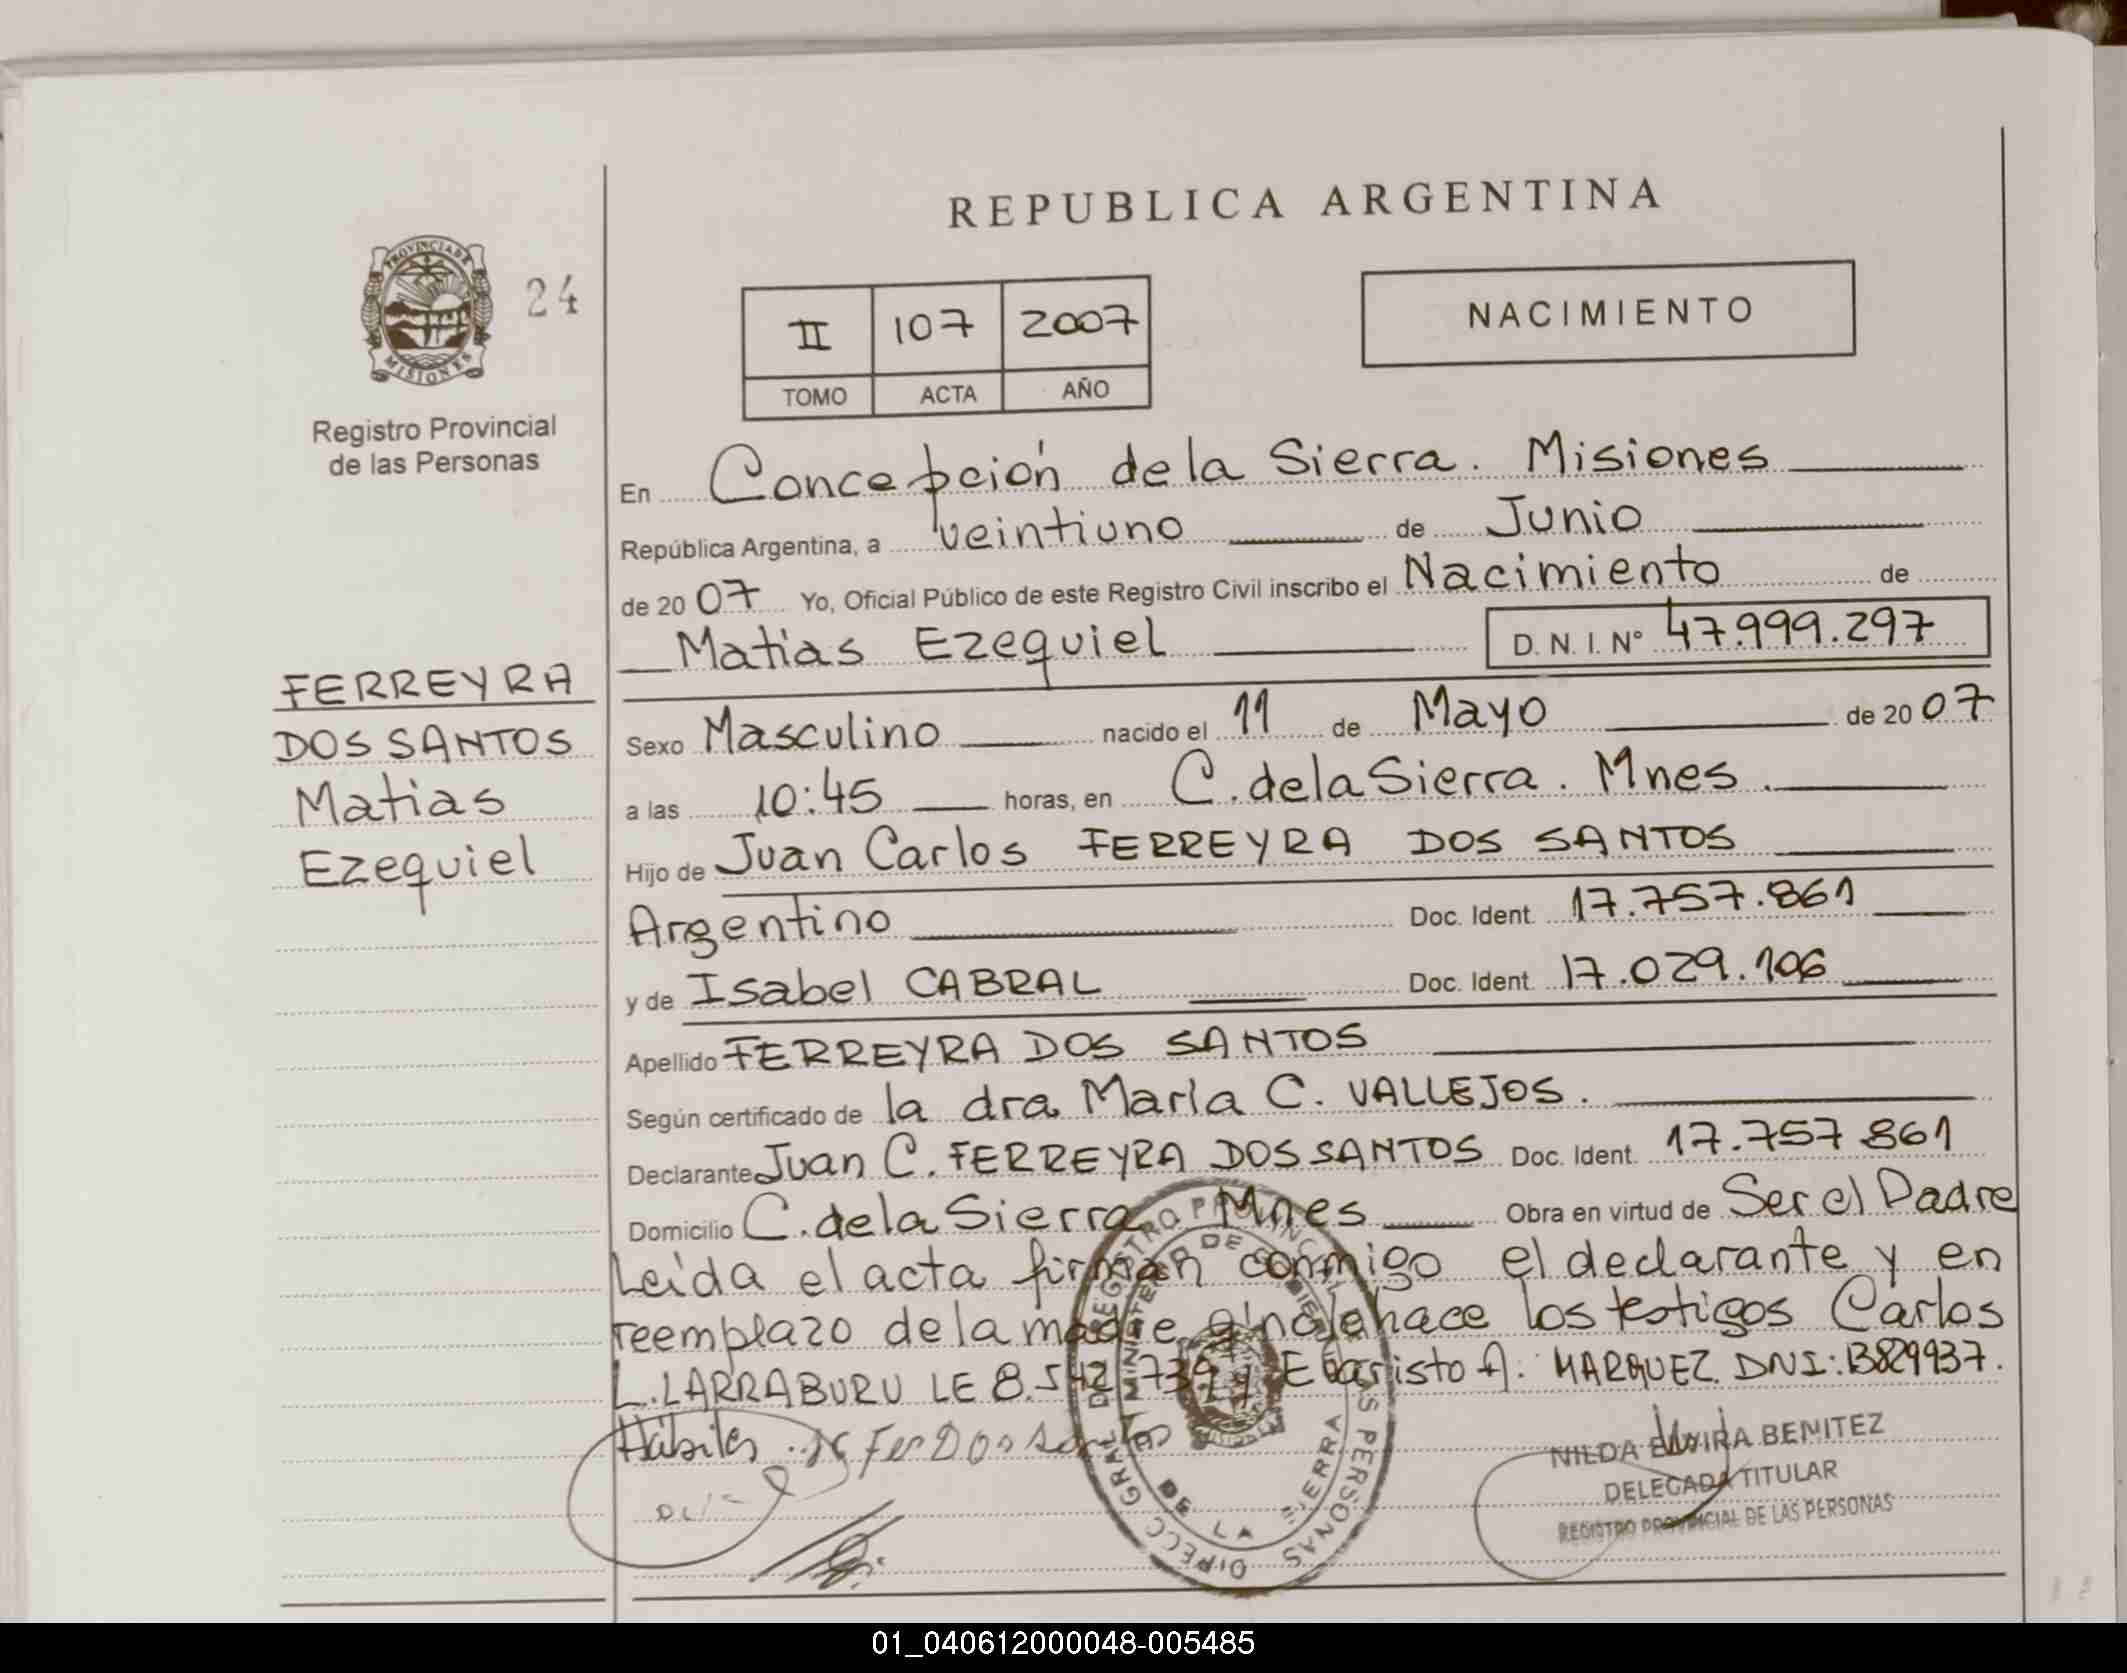 REPUBLICA ARGENTINA
PROVINCIA DE
MISIONES
24
Registro Provincial
de las Personas
II 107 2007
TOMO ACTA AÑO
NACIMIENTO
En Concepción de la Sierra. Misiones
República Argentina, a veintiuno de Junio
de 2007 Yo, Oficial Público de este Registro Civil inscribo el Nacimiento de
Matias Ezequiel D. N. I. N° 47.999.297
FERREYRA
DOS SANTOS
Matias
Ezequiel
Sexo Masculino nacido el 11 de Mayo de 2007
a las 10:45 horas, en C. de la Sierra. Mnes.
Hijo de Juan Carlos FERREYRA DOS SANTOS
Argentino Doc. Ident. 17.757.861
y de Isabel CABRAL Doc. Ident. 17.029.106
Apellido FERREYRA DOS SANTOS
Según certificado de la dra María C. VALLEJOS.
Declarante Juan C. FERREYRA DOS SANTOS Doc. Ident. 17.757 861
Domicilio C. de la Sierra Mnes Obra en virtud de Ser el Padre
Leída el acta firman conmigo el declarante y en
reemplazo de la madre q' no lo hace los testigos Carlos
L. LARRABURU LE 8.542.739 y Evaristo A. MARQUEZ. DNI: 13829937.
Hábiles
NILDA ELVIRA BENITEZ
DELEGADA TITULAR
REGISTRO PROVINCIAL DE LAS PERSONAS
DIRECC. GRAL. DE REGISTRO PROVINCIAL DE LAS PERSONAS
MINISTERIO DE GOBIERNO
DE LA SIERRA
01_040612000048-005485